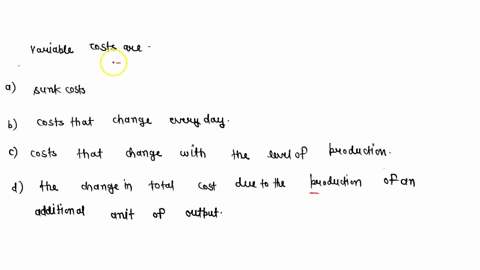 Variable costs are -
a) sunk costs
b) costs that change every day.
c) costs that change with the level of production.
d) the change in total cost due to the production of an
additional unit of output.